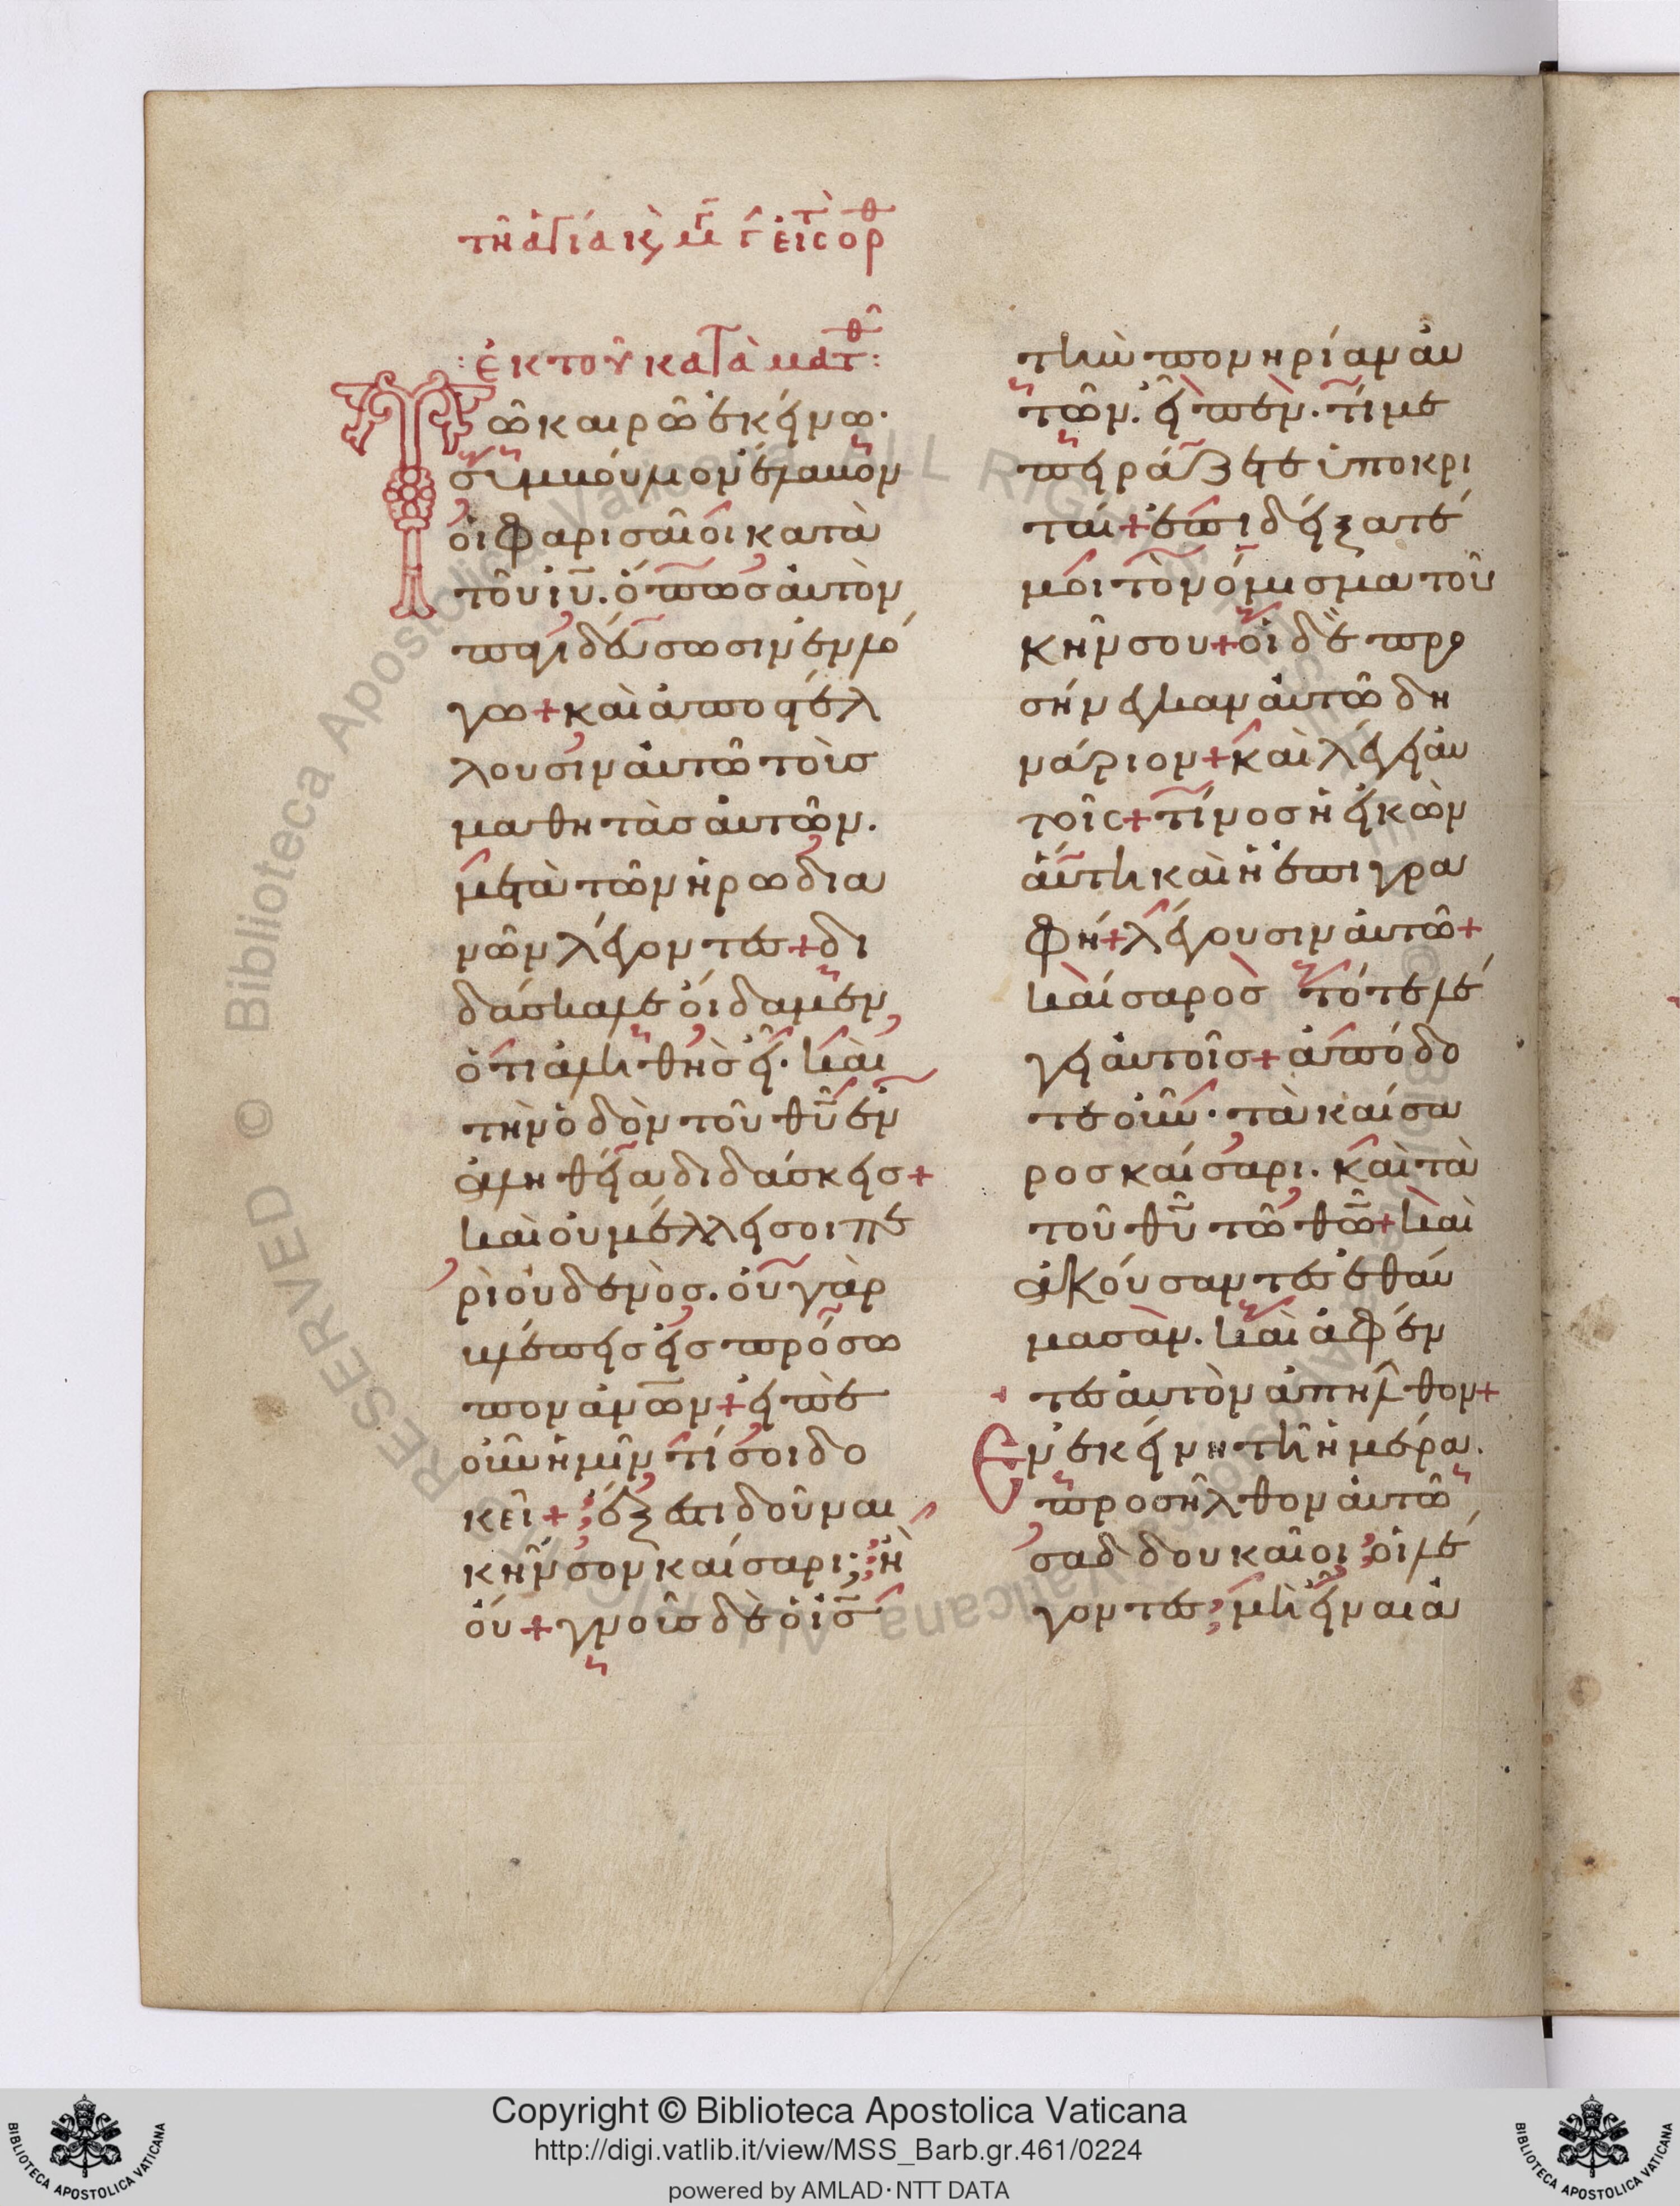 τῆ ἁγία κ μγ γ εἰς τὸ ορθ
: ἐκ τοῦ κατὰ ματθ :
Τῶ καιρῶ ἐκείνω·
συμβούλιον ἔλαβον
οἱ φαρισαῖοι κατὰ
τοῦ ιυ. ὅπως αὐτὸν
παγιδεύσωσιν ἐν λό
γω + καὶ ἀποστέλ
λουσιν αὐτῶ τοὺς
μαθητὰς αὐτῶν.
μετὰ τῶν ἡρωδια
νῶν λέγοντες + δι
δάσκαλε οἴδαμεν
ὅτι ἀληθὴς εἶ. καὶ
τὴν ὁδὸν τοῦ θυ ἐν
ἀληθεία διδάσκεις +
καὶ οὐ μέλλει σοι πε
ρὶ οὐδενὸς. οὐ γὰρ
βλέπεις εἰς πρόσω
πον ἀνων + εἰπὲ
οὖν ἡμῖν τί σοι δο
κεῖ + ἔξεστι δοῦναι
κῆνσον καίσαρι; ἢ
οὔ + γνοὺς δὲ ὁ ις
τὴν πονηρίαν αὐ
τῶν. εἶπεν. τί με
πειράζετε ὑποκρι
ταί + ἐπιδείξατέ
μοι τὸ νόμισμα τοῦ
κήνσου + οἱ δὲ προ
σήνεγκαν αὐτῶ δη
νάριον + καὶ λέγει αὐ
τοῖς + τίνος ἡ εἰκὼν
αὕτη καὶ ἡ ἐπιγρα
φή + λέγουσιν αὐτῶ +
καίσαρος τότε λέ
γει αὐτοῖς + ἀπόδο
τε οὖν· τὰ καίσα
ρος καίσαρι. καὶ τὰ
τοῦ θυ τῶ θω + καὶ
ἀκούσαντες ἐθαύ
μασαν. καὶ ἀφέν
τες αὐτὸν ἀπῆλθον +
Ἐν ἐκείνη τῆ ἡμέρα.
προσῆλθον αὐτῶ
σαδδουκαῖοι οἱ λέ
γοντες μὴ εἶναι ἀ
Copyright © Biblioteca Apostolica Vaticana
http://digi.vatlib.it/view/MSS_Barb.gr.461/0224
powered by AMLAD·NTT DATA